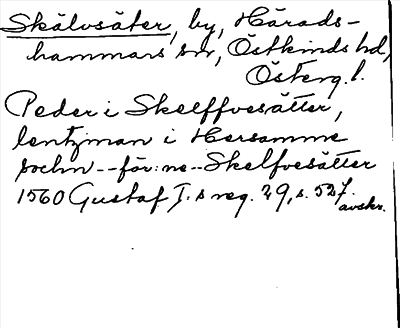 Skälvsäter, by, Härads-
hammars sn, Östkinds hd,
Österg. l.
Peder i Skelffvesätter,
lentzman i Hersamme
sochn -- för:ne -- Skelfvesätter
1560 Gustaf I:s reg. 29, s. 527.
avskr.